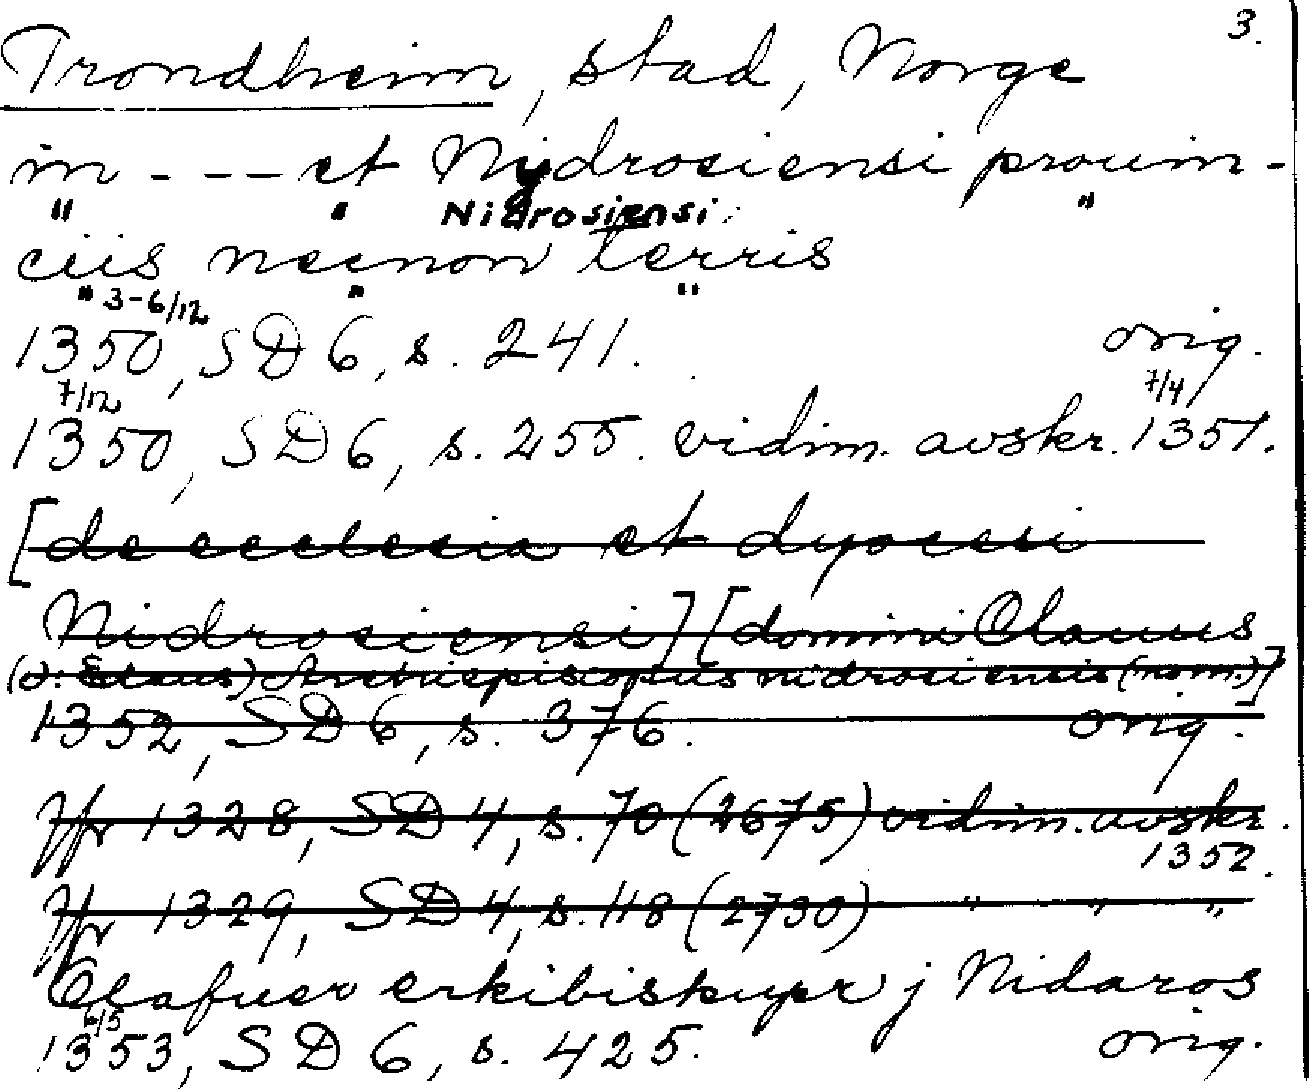 3.
Trondheim, stad, Norge
in - - - et Nydrosiensi prouin-
" " Nidrosiensi "
ciis necnon terris
" 3-6/12 " "
1350, SD 6, s. 241. orig.
7/12 7/4
1350, SD 6, s. 255. vidim. avskr. 1351.
[de ecclesia et dyocesi
Nidrosiensi] [domini Clauus
(o: Elauus) Archiepiscopus nidrosiensis (nom.)]
1352, SD 6, s. 376. orig.
Jfr 1328, SD 4, s. 70 (2675) vidim. avskr.
1352.
Jfr 1329, SD 4, s. 118 (2730) " " "
Olafuer erkibiskupr j Nidaros
6/5
1353, SD 6, s. 425. orig.